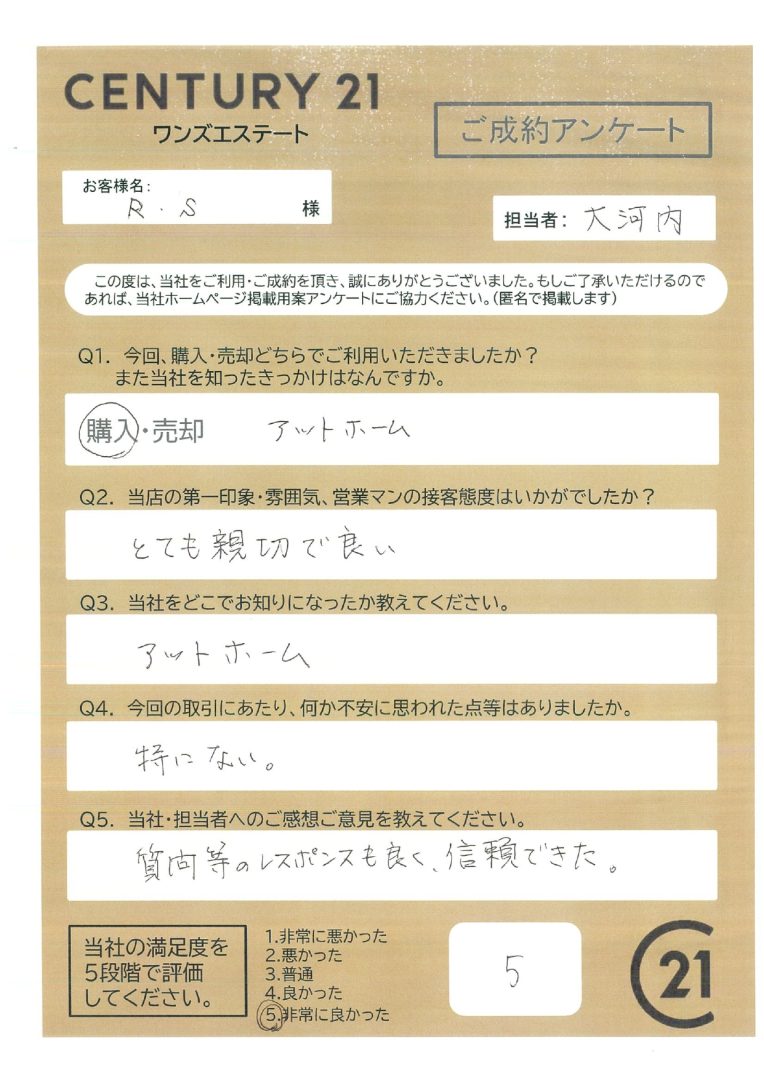 CENTURY 21
ワンズエステート
ご成約アンケート
お客様名:
R.S 様
担当者: 大河内
この度は、当社をご利用・ご成約を頂き、誠にありがとうございました。もしご了承いただけるので
あれば、当社ホームページ掲載用案アンケートにご協力ください。(匿名で掲載します)
Q1. 今回、購入・売却どちらでご利用いただきましたか?
また当社を知ったきっかけはなんですか。
購入・売却 アットホーム
Q2. 当店の第一印象・雰囲気、営業マンの接客態度はいかがでしたか?
とても親切で良い
Q3. 当社をどこでお知りになったか教えてください。
アットホーム
Q4. 今回の取引にあたり、何か不安に思われた点等はありましたか。
特にない。
Q5. 当社・担当者へのご感想ご意見を教えてください。
質問等のレスポンスも良く、信頼できた。
当社の満足度を
5段階で評価
してください。
1.非常に悪かった
2.悪かった
3.普通
4.良かった
5.非常に良かった
5
21